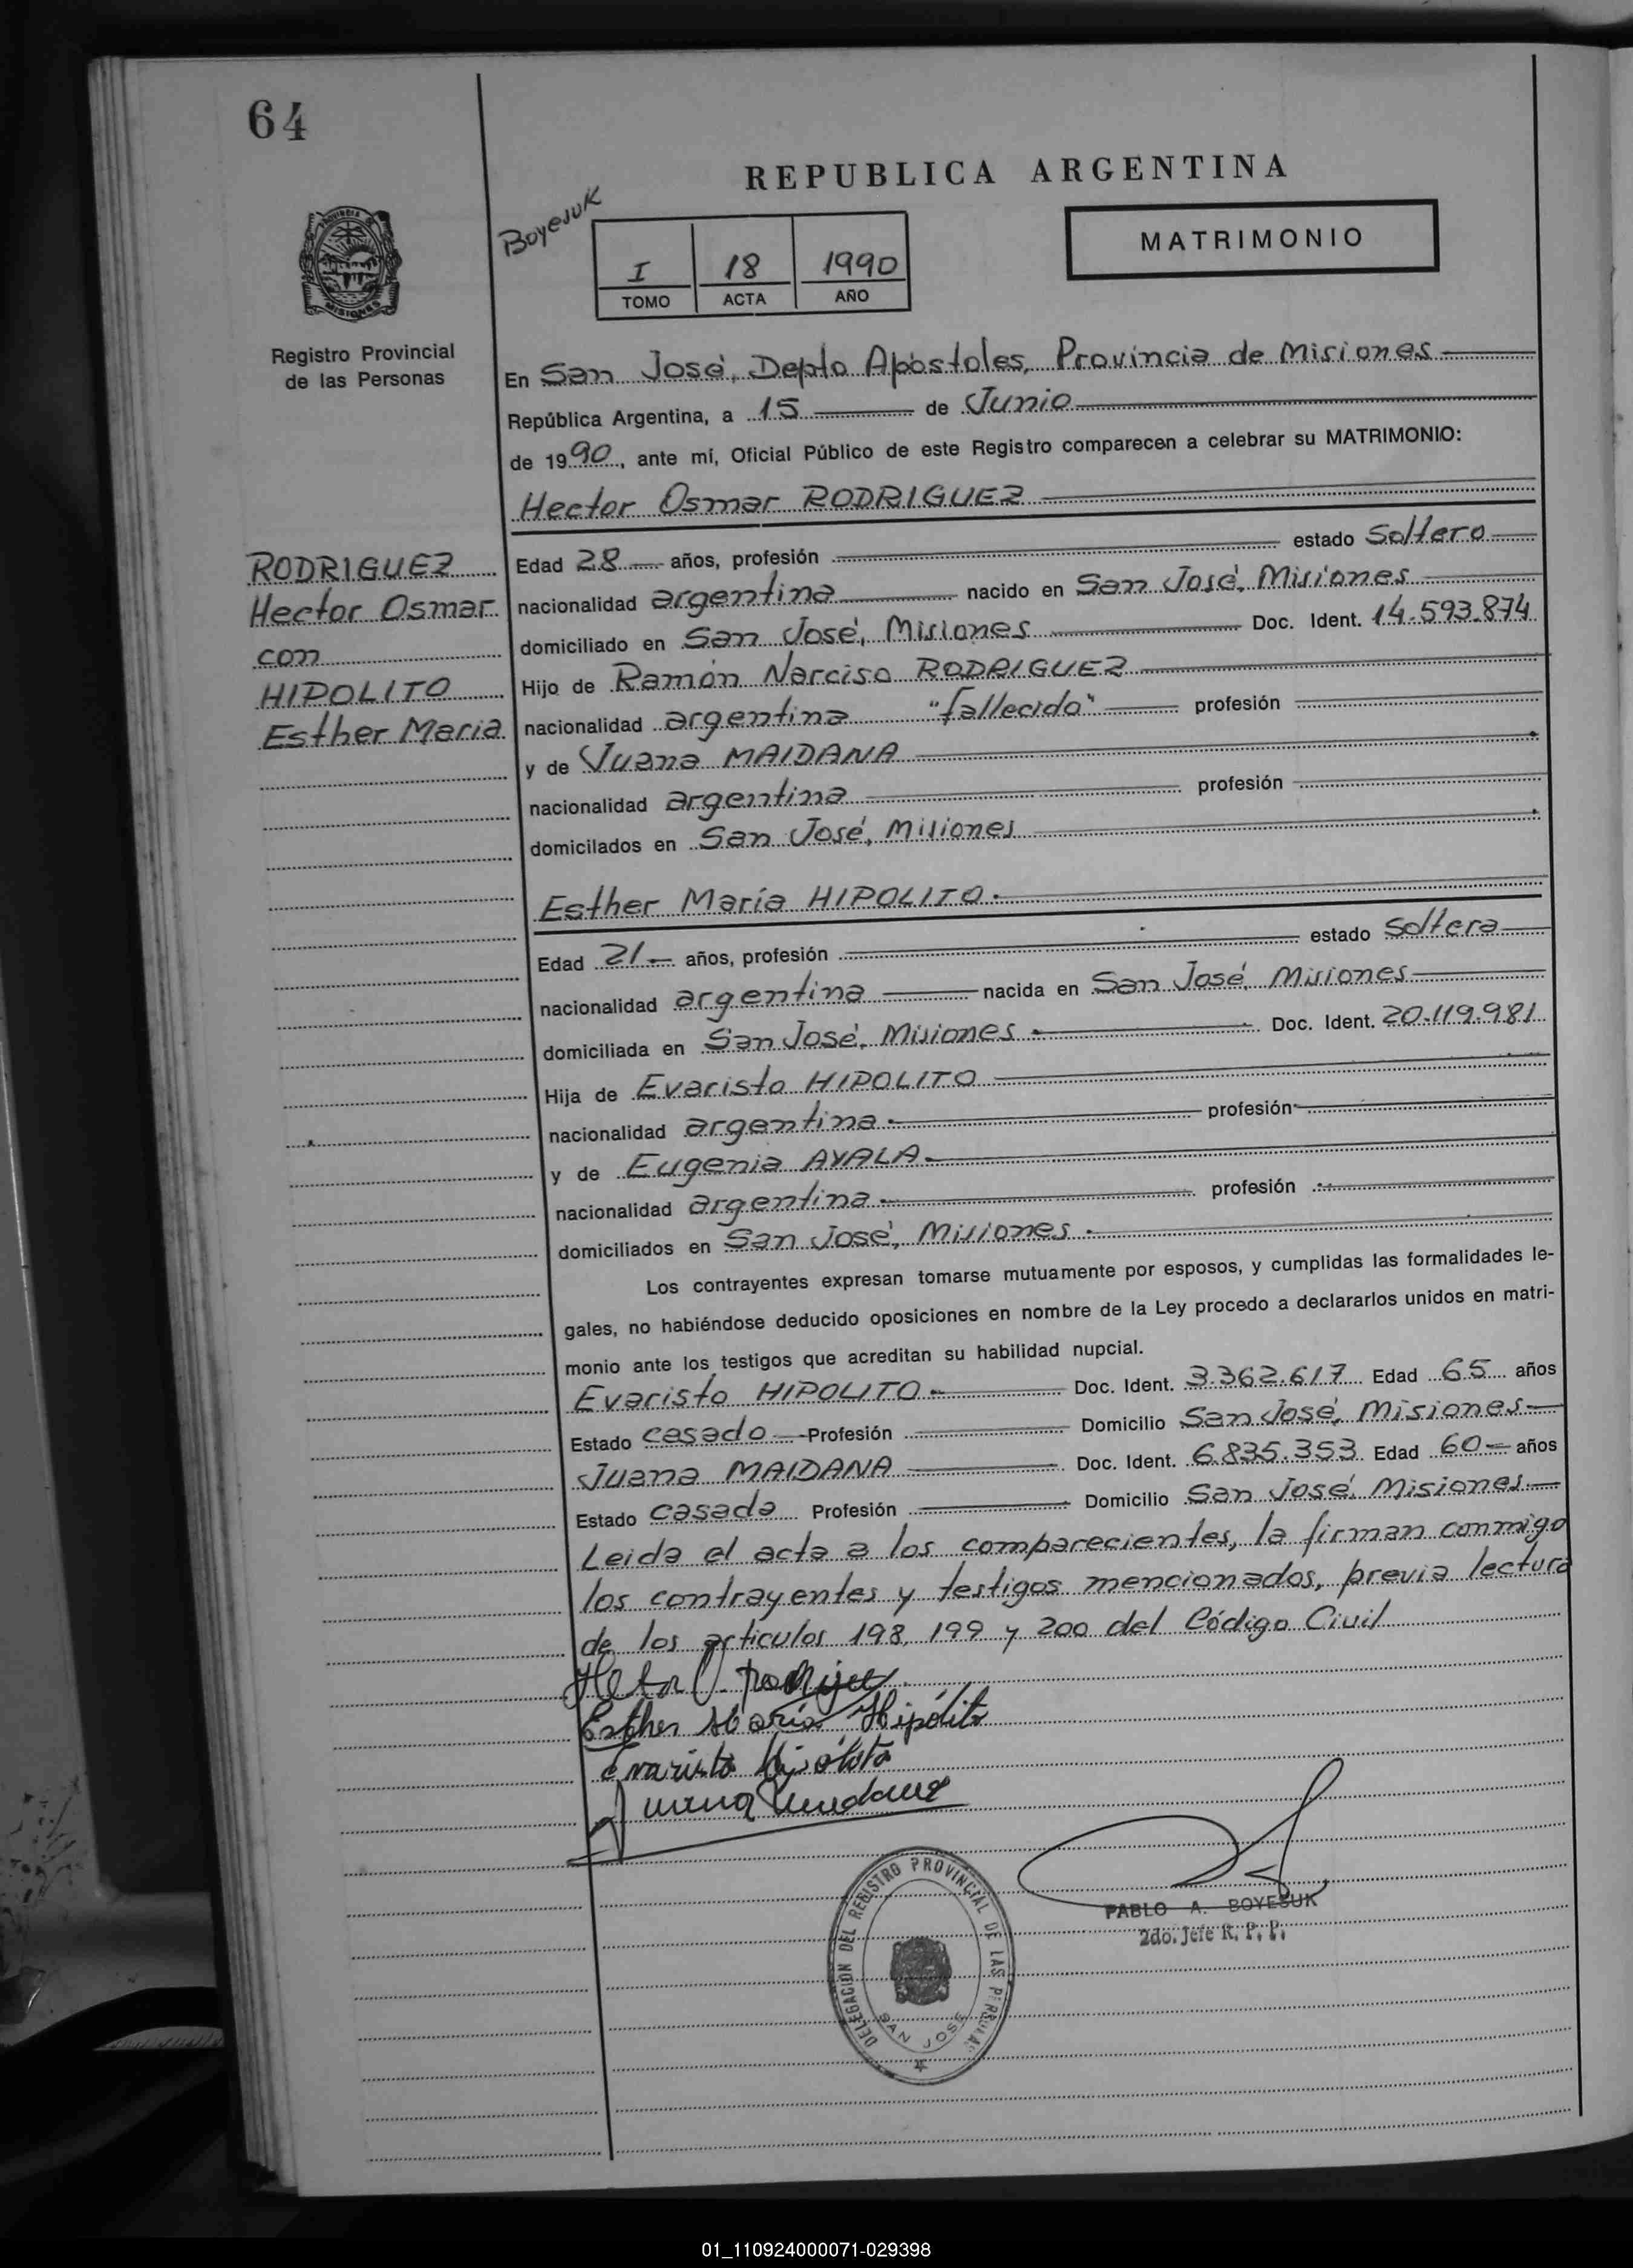 64
REPUBLICA ARGENTINA
Boyesuk
MATRIMONIO
I 18 1990
TOMO ACTA AÑO
PROVINCIA DE
MISIONES
Registro Provincial
de las Personas
En San José, Depto Apóstoles, Provincia de Misiones
República Argentina, a 15 de Junio
de 1990, ante mí, Oficial Público de este Registro comparecen a celebrar su MATRIMONIO:
Hector Osmar RODRIGUEZ
RODRIGUEZ
Hector Osmar
con
HIPOLITO
Esther Maria
Edad 28 años, profesión estado Soltero
nacionalidad argentina nacido en San José, Misiones
domiciliado en San José, Misiones Doc. Ident. 14.593.874
Hijo de Ramón Narciso RODRIGUEZ
nacionalidad argentina "fallecido" profesión
y de Juana MAIDANA
nacionalidad argentina profesión
domicilados en San José, Misiones
Esther María HIPOLITO.
Edad 21 años, profesión estado Soltera
nacionalidad argentina nacida en San José, Misiones
domiciliada en San José, Misiones Doc. Ident. 20.119.981
Hija de Evaristo HIPOLITO
nacionalidad argentina. profesión
y de Eugenia AYALA
nacionalidad argentina profesión
domiciliados en San José, Misiones.
Los contrayentes expresan tomarse mutuamente por esposos, y cumplidas las formalidades le-
gales, no habiéndose deducido oposiciones en nombre de la Ley procedo a declararlos unidos en matri-
monio ante los testigos que acreditan su habilidad nupcial.
Evaristo HIPOLITO Doc. Ident. 3.362.617 Edad 65 años
Estado casado Profesión Domicilio San José, Misiones
Juana MAIDANA Doc. Ident. 6.835.353 Edad 60 años
Estado casada Profesión Domicilio San José, Misiones
Leida el acta a los comparecientes, la firman conmigo
los contrayentes y testigos mencionados, previa lectura
de los articulos 198, 199 y 200 del Código Civil
Esther María Hipólito
Evaristo Hipólito
Juana Maidana
DELEGACION DEL REGISTRO PROVINCIAL DE LAS PERSONAS
SAN JOSE
PABLO A. BOYESUK
2do. Jefe R. P. P.
01_110924000071-029398